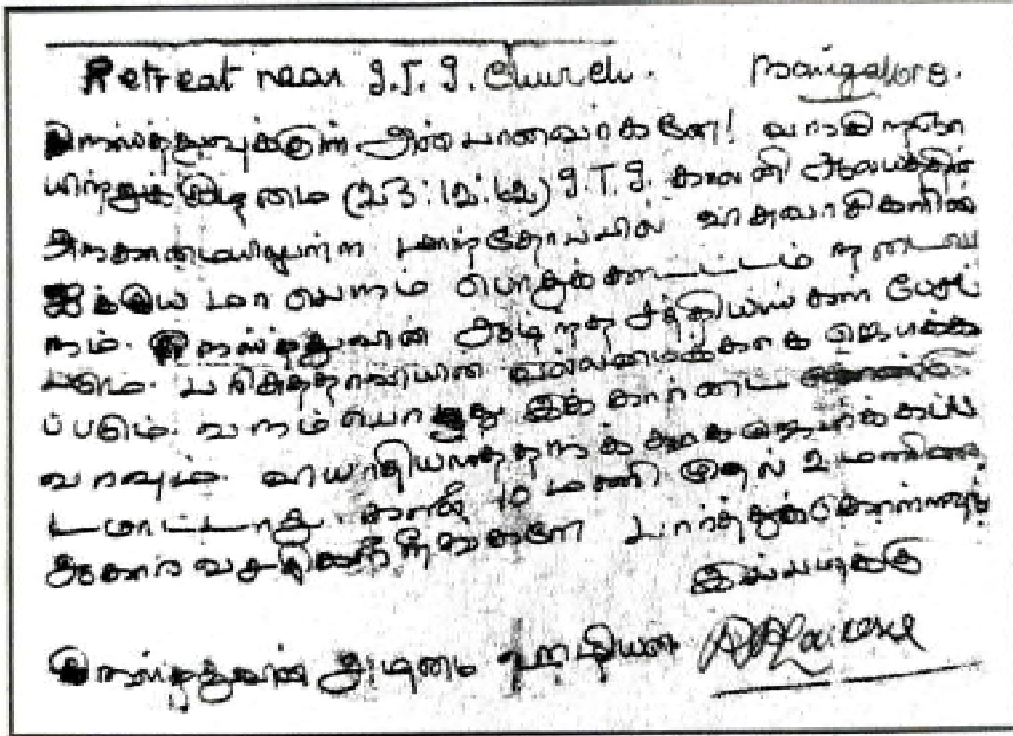 Retreat near I.T.I. Church. Bangalore.
கிறிஸ்துவுக்குள் அன்பானவர்களே! வருகிற ஞா
யிற்றுக்கிழமை (23:12:62) I.T.I. காலனி ஆலயத்தின்
அருகாமையிலுள்ள மாந்தோப்பில் வாதுவாசிகளின்
ஐக்கியமாகவும் பொதுக்கூட்டம் நடைபெ
றும். கிறிஸ்துவின் ஆழ்ந்த சத்தியங்கள் பேசப்
படும். பரிசுத்தாவியின் வல்லமைக்காக ஜெபிக்க
ப்படும். வரும்பொழுது இக் கார்டை கொண்டு
வரவும். வியாதியஸ்தருக்காக ஜெபிக்கப்ப
டமாட்டாது. காலை 10 மணி முதல் 2 மணிவரை
ஆகார வசதிகளை நீங்களே பார்த்துக்கொள்ளவும்
இப்படிக்கு
கிறிஸ்துவின் அடிமை ஊழியன்